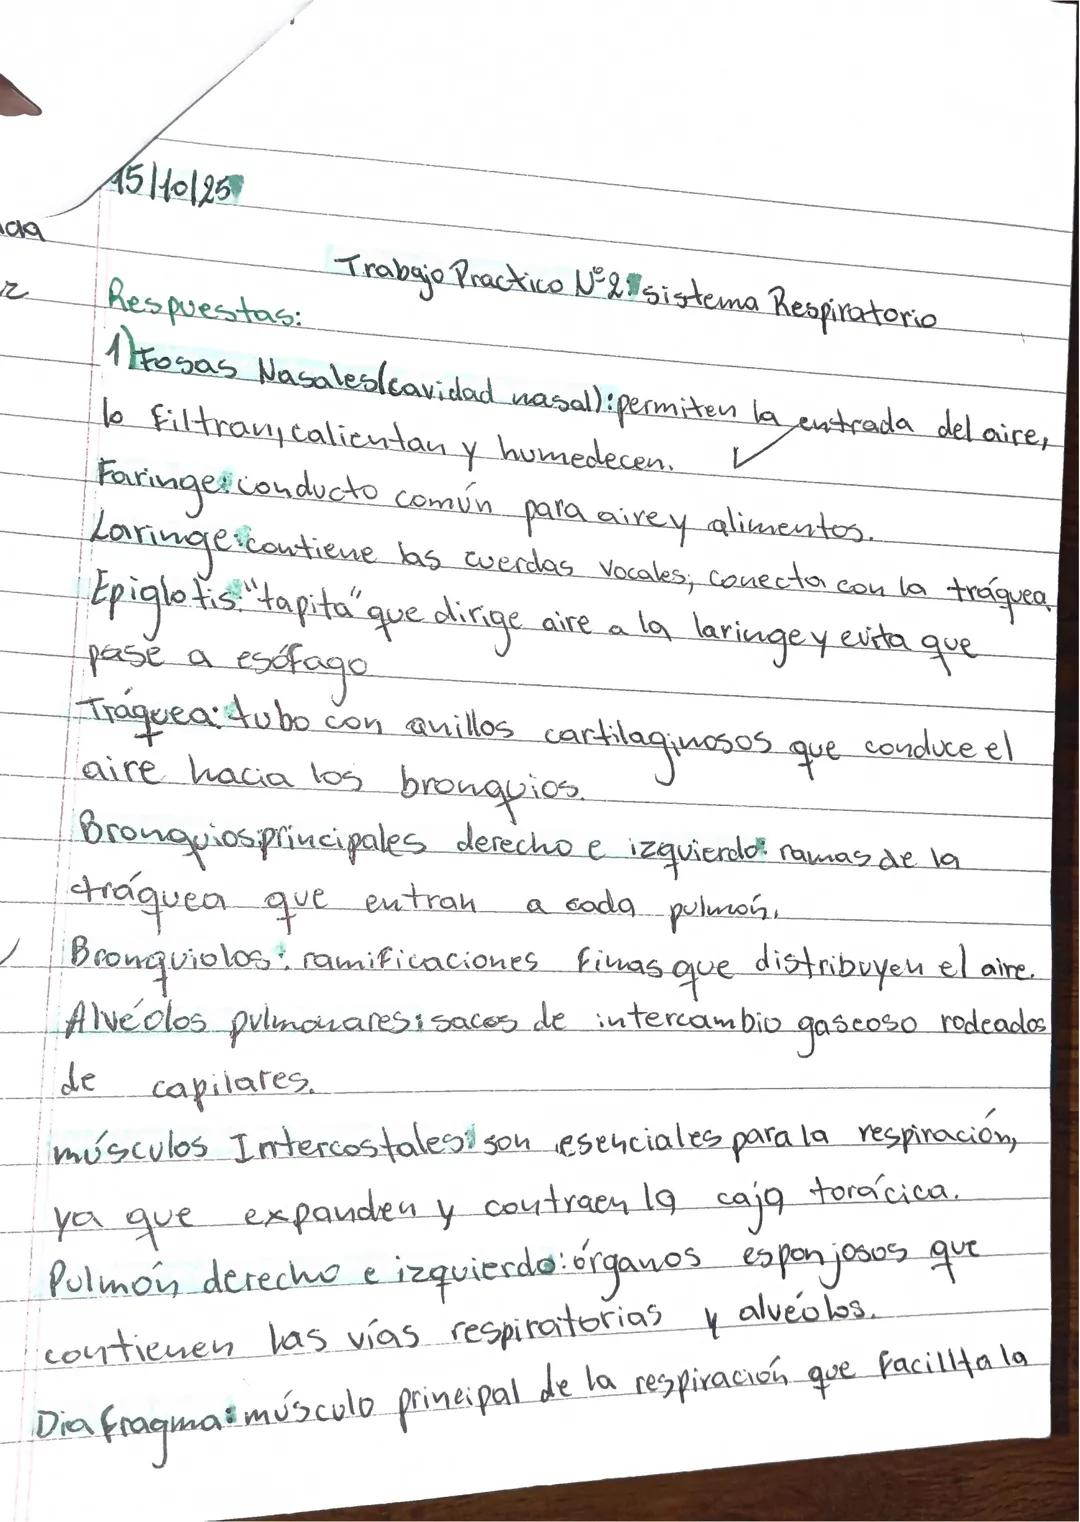 15/10/25
Trabajo Practico N°2: sistema Respiratorio
Respuestas:
1) Fosas Nasales (cavidad nasal): permiten la entrada del aire,
lo filtran, calientan y humedecen.
Faringe: conducto común para aire y alimentos.
Laringe: contiene las cuerdas vocales; conecta con la tráquea.
Epiglotis: "tapita" que dirige aire a la laringe y evita que
pase a esófago
Tráquea: tubo con anillos cartilaginosos que conduce el
aire hacia los bronquios.
Bronquios principales derecho e izquierdo: ramas de la
tráquea que entran a cada pulmón.
Bronquiolos: ramificaciones finas que distribuyen el aire.
Alvéolos pulmonares: sacos de intercambio gaseoso rodeados
de capilares.
músculos Intercostales: son esenciales para la respiración,
ya que expanden y contraen la caja torácica.
Pulmón derecho e izquierdo: órganos esponjosos que
contienen las vías respiratorias y alvéolos.
Diafragma: músculo principal de la respiración que facilita la